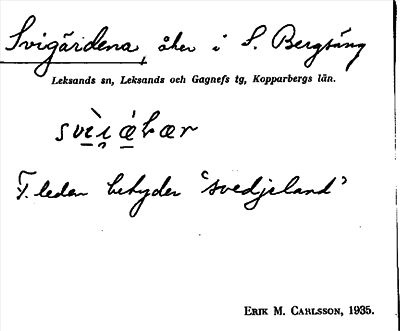 Svigärdena, åker i S. Bergsäng
Leksands sn, Leksands och Gagnefs tg, Kopparbergs län.
F. leden betyder "svedjeland"
ERIK M. CARLSSON, 1935.